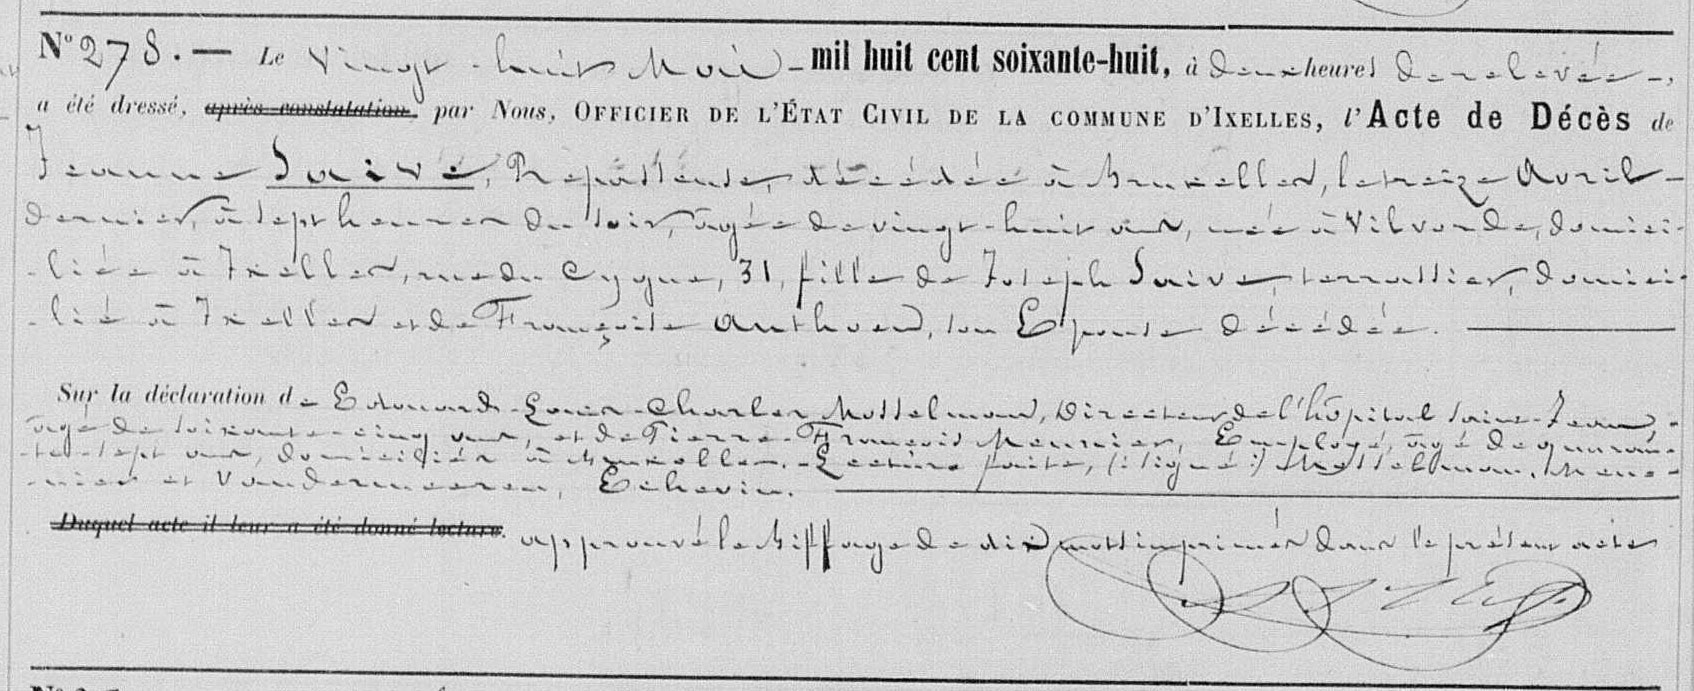 N° 278. — Le Vingt-huit Mai - mil huit cent soixante-huit, à deux heures de relevée -,
a été dressé, après constatation, par Nous, OFFICIER DE L'ÉTAT CIVIL DE LA COMMUNE D'IXELLES, l'Acte de Décès de
Jeanne Saive, Repasseuse, décédée à Bruxelles, le treize Avril -
dernier, à sept heures du soir, âgée de vingt-huit ans, née à Vilvorde, domici-
-liée à Ixelles, rue du Cygne, 31, fille de Joseph Saive, terrassier, domici-
-lié à Ixelles et de Françoise Anthoen, son Epouse décédée. —
Sur la déclaration de Edouard-Louis-Charles Mosselman, Directeur de l'hôpital Saint-Jean -
âgé de soixante-cinq ans, et de Pierre-François Meunier, Employé, âgé de quaran-
-te-sept ans, domiciliés à Bruxelles. - Lecture faite, (:signé:) Mosselman, Meu-
-nier et Vandermeeren, Echevin. —
Duquel acte il leur a été donné lecture. approuvé le biffage de dix mots imprimés dans le présent acte